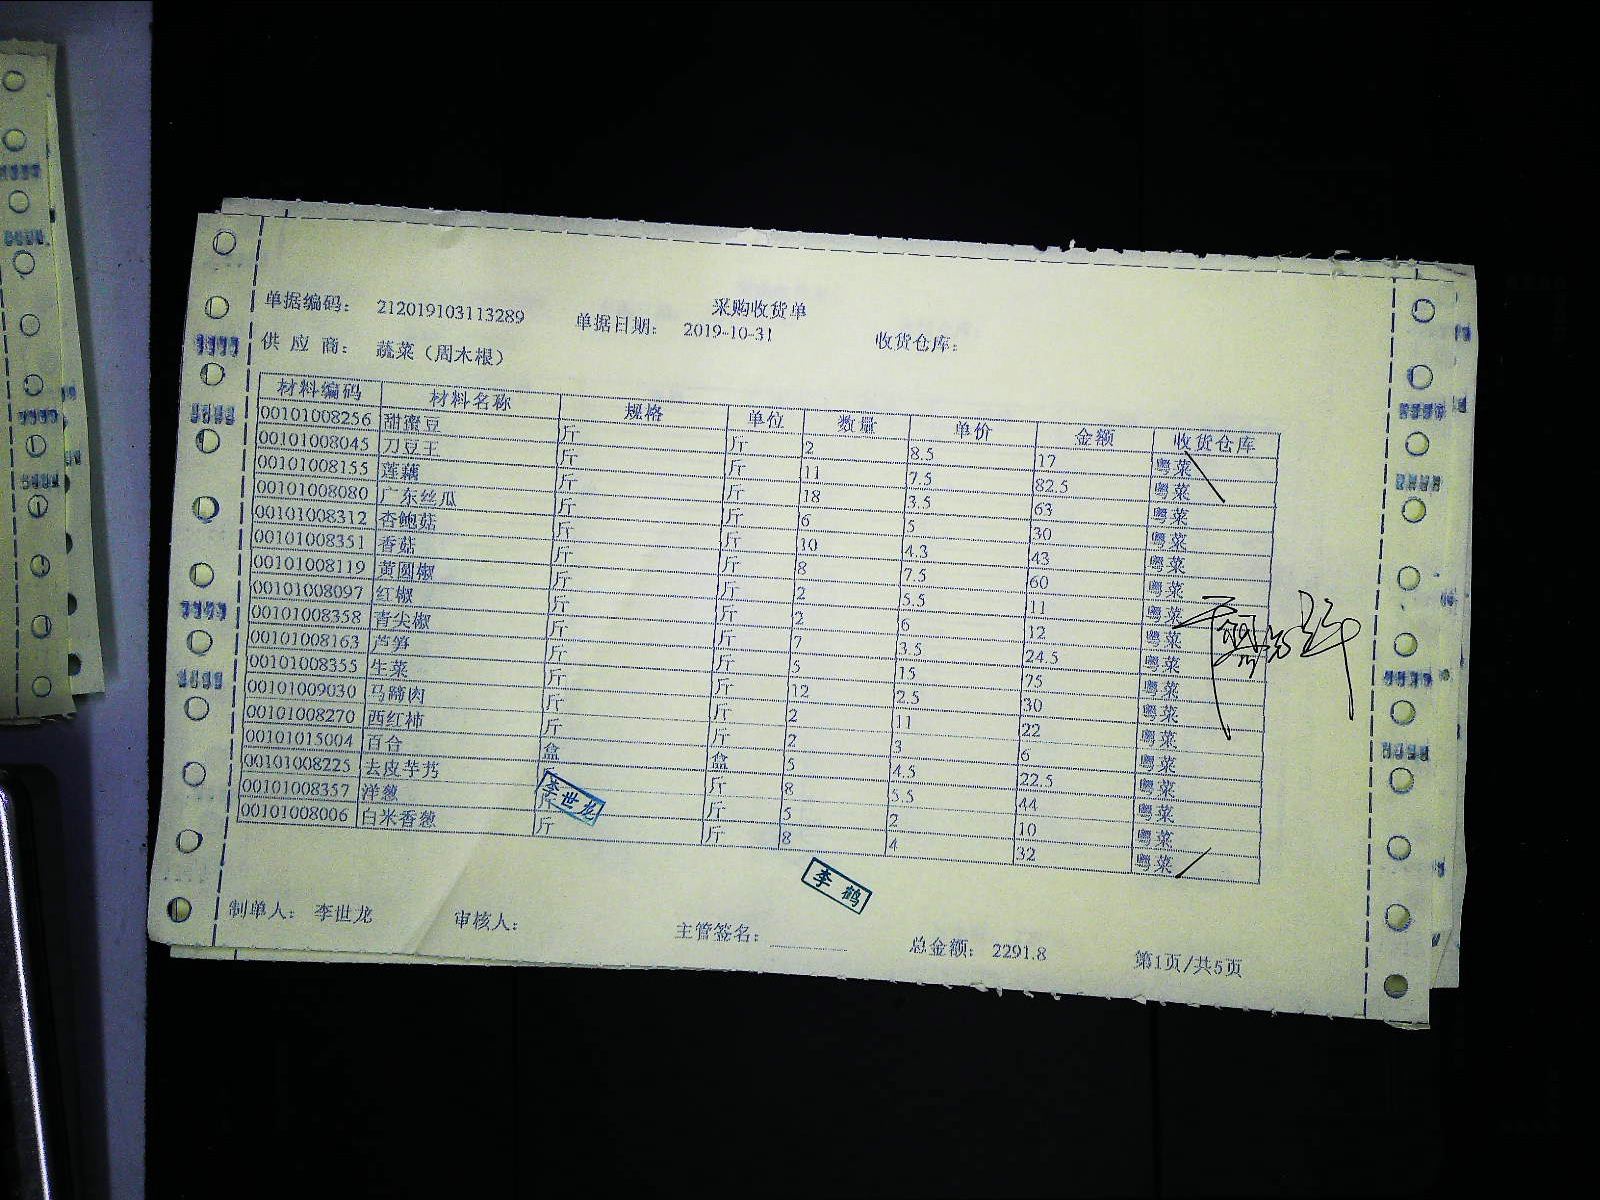 采购收货单
单据编码： 212019103113289 单据日期： 2019-10-31 收货仓库：
供 应 商： 蔬菜（周木根）
材料编码 材料名称 规格 单位 数量 单价 金额 收货仓库
00101008256 甜蜜豆 斤 斤 2 8.5 17 粤菜
00101008045 刀豆王 斤 斤 11 7.5 82.5 粤菜
00101008155 莲藕 斤 斤 18 3.5 63 粤菜
00101008080 广东丝瓜 斤 斤 6 5 30 粤菜
00101008312 杏鲍菇 斤 斤 10 4.3 43 粤菜
00101008351 香菇 斤 斤 8 7.5 60 粤菜
00101008119 黄圆椒 斤 斤 2 5.5 11 粤菜
00101008097 红椒 斤 斤 2 6 12 粤菜
00101008358 青尖椒 斤 斤 7 3.5 24.5 粤菜
00101008163 芦笋 斤 斤 5 15 75 粤菜
00101008355 生菜 斤 斤 12 2.5 30 粤菜
00101009030 马蹄肉 斤 斤 2 11 22 粤菜
00101008270 西红柿 斤 斤 2 3 6 粤菜
00101015004 百合 盒 盒 5 4.5 22.5 粤菜
00101008225 去皮芋艿 斤 8 5.5 44 粤菜
00101008357 洋葱 斤 斤 5 2 10 粤菜
00101008006 白米香葱 斤 斤 8 4 32 粤菜
李世龙
李鹤
制单人： 李世龙 审核人： 主管签名： 总金额： 2291.8 第1页/共5页